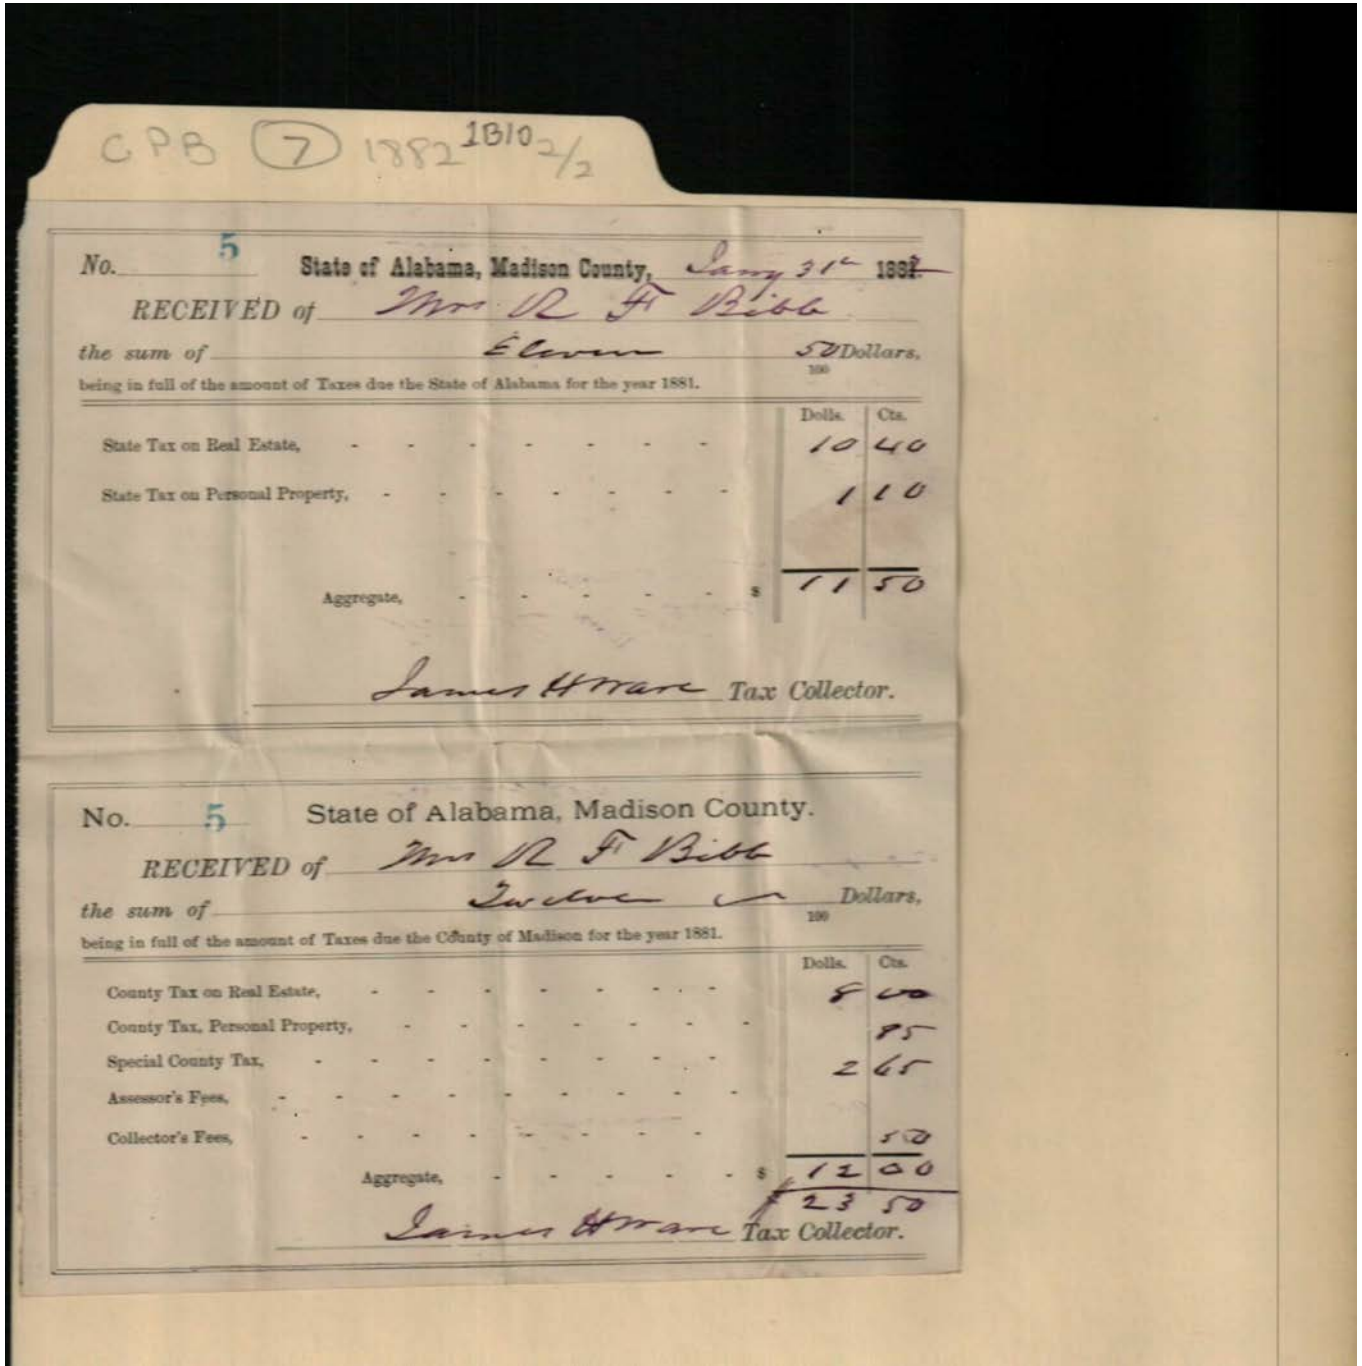 CPB 7 1882 1B10 2/2
No. 5 State of Alabama, Madison County, Jany 31st 1882
RECEIVED of Mrs R F Bibb
the sum of Eleven 50/100 Dollars,
being in full of the amount of Taxes due the State of Alabama for the year 1881.
Dolls. Cts.
State Tax on Real Estate, - - - - - - - 10 40
State Tax on Personal Property, - - - - - - - 1 10
Aggregate, - - - - - $ 11 50
James H Ware Tax Collector.
No. 5 State of Alabama, Madison County.
RECEIVED of Mrs R F Bibb
the sum of Twelve /100 Dollars,
being in full of the amount of Taxes due the County of Madison for the year 1881.
Dolls. Cts.
County Tax on Real Estate, - - - - - - - 8 00
County Tax, Personal Property, - - - - - - - 85
Special County Tax, - - - - - - - - 2 65
Assessor's Fees, - - - - - - - - -
Collector's Fees, - - - - - - - - 50
Aggregate, - - - - - $ 12 00
$ 23 50
James H Ware Tax Collector.